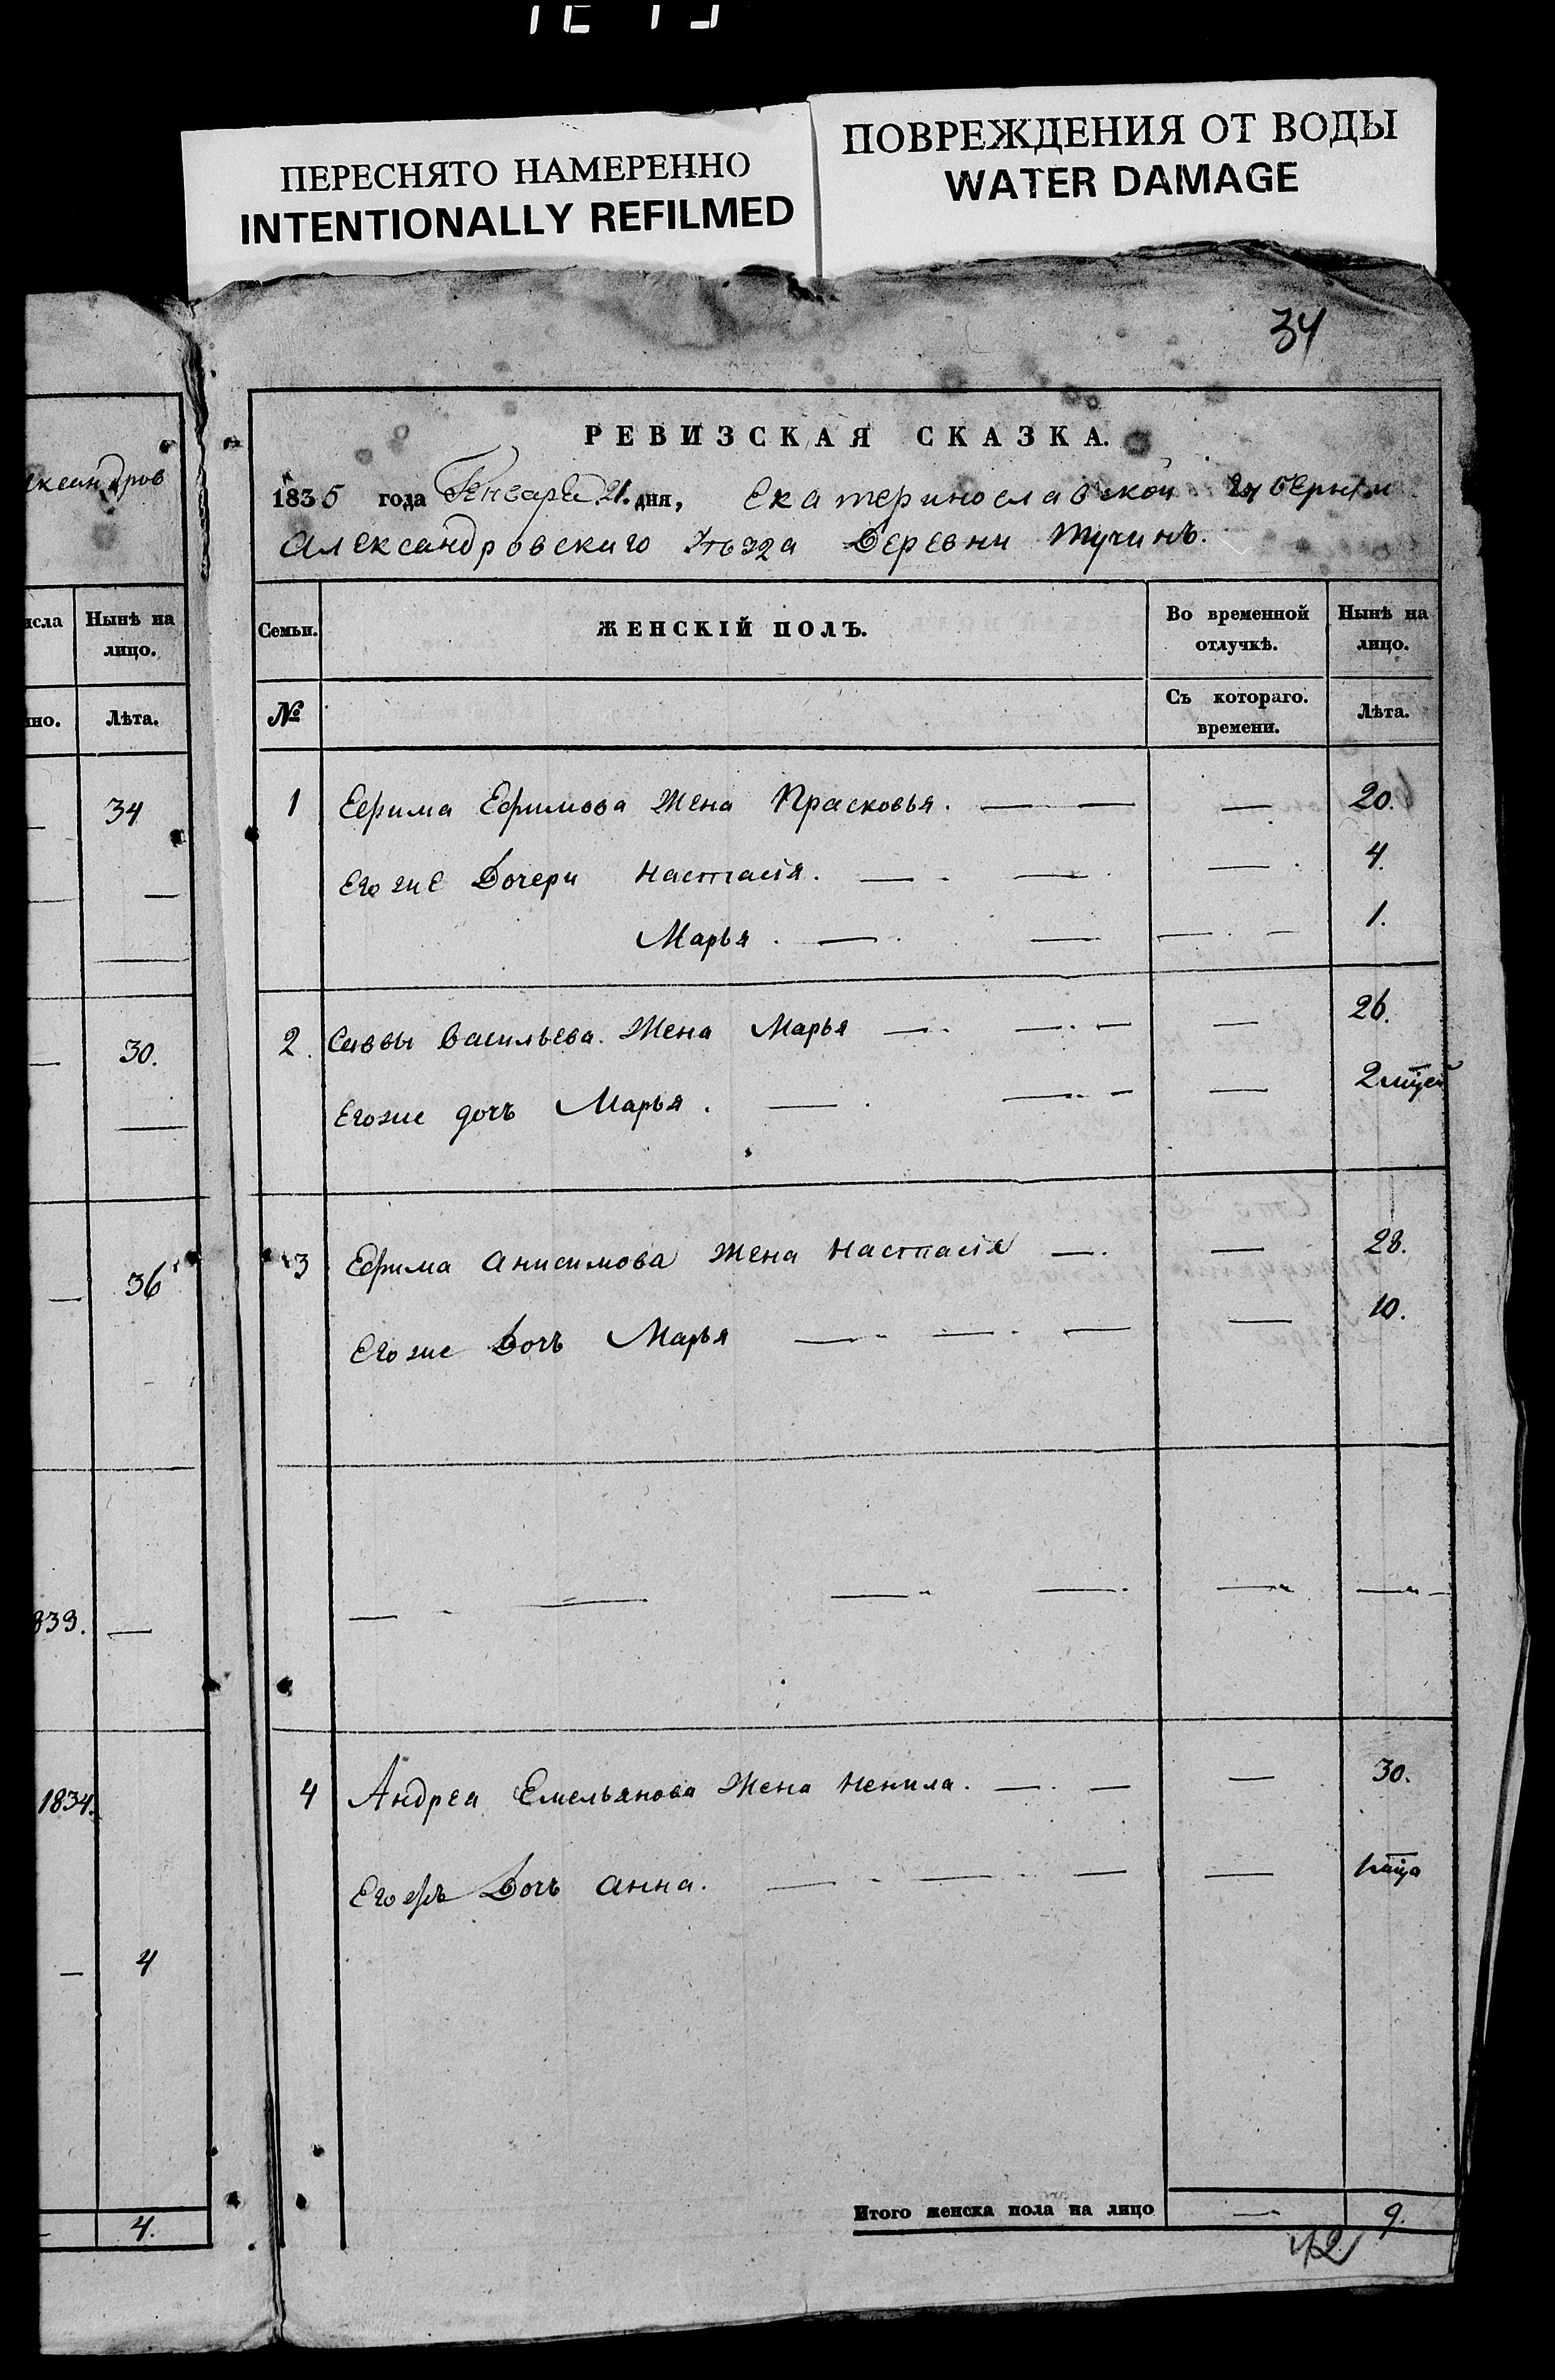 ПЕРЕСНЯТО НАМЕРЕННО
INTENTIONALLY REFILMED
ПОВРЕЖДЕНИЯ ОТ ВОДЫ
WATER DAMAGE
34
РЕВИЗСКАЯ СКАЗКА.
1835 года Генваря 21. дня, Екатеринославской губернии
Александровскаго Уѣзда Деревни Тучинъ.
Семьи. ЖЕНСКІЙ ПОЛЪ. Во временной отлучкѣ. Нынѣ на лицо.
№ Съ котораго. времени. Лѣта.
1 Ефима Ефимова Жена Прасковья. — — — 20.
Его же Дочери Настасія. — — — 4.
Марья. — — — 1.
2. Саввы Васильева. Жена Марья — — — 26.
Егоже дочь Марья. — — — 2 мцей
3 Ефима Анисимова Жена Настасія — — 28.
Егоже Дочь Марья — — — — 10.
— — — — — —
4 Андрея Емельянова Жена Ненила. — — — 30.
Егожъ Дочь Анна. — — — — 1 мца
Итого женска пола на лицо — 9.
42
ксандров
исла Нынѣ на лицо.
но. Лѣта.
— 34
—
— 30.
— 36
833. —
1834.
— 4
— 4.